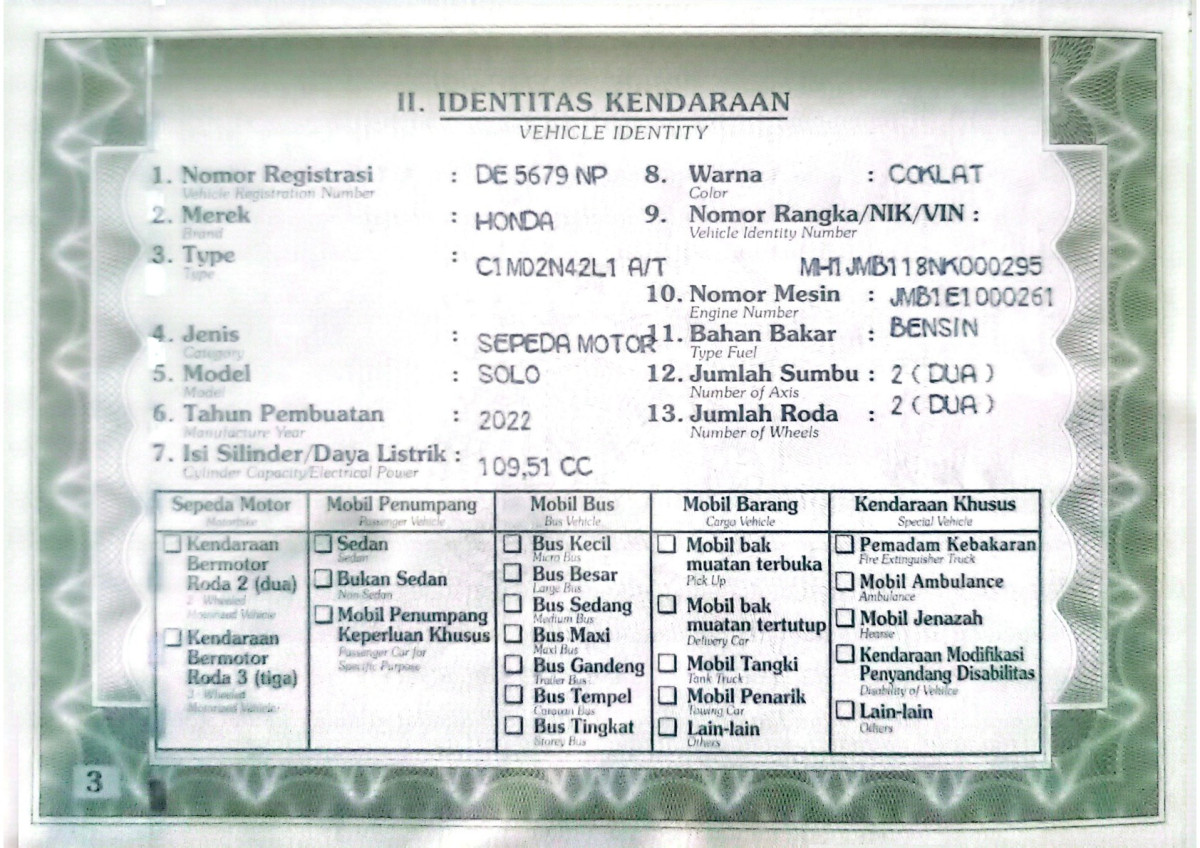 II. IDENTITAS KENDARAAN
VEHICLE IDENTITY
1. Nomor Registrasi : DE 5679 NP
Vehicle Registration Number
2. Merek : HONDA
Brand
3. Type : C1MD2N42L1 A/T
Type
4. Jenis : SEPEDA MOTOR
Category
5. Model : SOLO
Model
6. Tahun Pembuatan : 2022
Manufacture Year
7. Isi Silinder/Daya Listrik : 109,51 CC
Cylinder Capacity/Electrical Power
8. Warna : COKLAT
Color
9. Nomor Rangka/NIK/VIN :
Vehicle Identity Number
MH1JMB118NK000295
10. Nomor Mesin : JMB1E1000261
Engine Number
11. Bahan Bakar : BENSIN
Type Fuel
12. Jumlah Sumbu : 2 ( DUA )
Number of Axis
13. Jumlah Roda : 2 ( DUA )
Number of Wheels
Sepeda Motor
Motorbike
Kendaraan
Bermotor
Roda 2 (dua)
2 - Wheeled
Motorized Vehicle
Kendaraan
Bermotor
Roda 3 (tiga)
3 - Wheeled
Motorized Vehicle
Mobil Penumpang
Passenger Vehicle
Sedan
Sedan
Bukan Sedan
Non-Sedan
Mobil Penumpang
Keperluan Khusus
Passenger Car for
Specific Purpose
Mobil Bus
Bus Vehicle
Bus Kecil
Micro Bus
Bus Besar
Large Bus
Bus Sedang
Medium Bus
Bus Maxi
Maxi Bus
Bus Gandeng
Trailer Bus
Bus Tempel
Caravan Bus
Bus Tingkat
Storey Bus
Mobil Barang
Cargo Vehicle
Mobil bak
muatan terbuka
Pick Up
Mobil bak
muatan tertutup
Delivery Car
Mobil Tangki
Tank Truck
Mobil Penarik
Towing Car
Lain-lain
Others
Kendaraan Khusus
Special Vehicle
Pemadam Kebakaran
Fire Extinguisher Truck
Mobil Ambulance
Ambulance
Mobil Jenazah
Hearse
Kendaraan Modifikasi
Penyandang Disabilitas
Disability of Vehilce
Lain-lain
Others
3